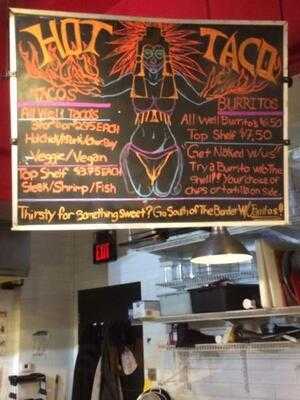 HOT TACO
TACOS
All Well Tacos
$2.95 EACH
Veggie/Vegan
Top Shelf $3.75 EACH
Steak/Shrimp/Fish
BURRITOS
All Well Burritos $6.50
Top Shelf $7.50
"Get Naked W/us"
Try a Burrito w/o The
Shell!! Your choice of
chips or tortilla on side
Thirsty for Something Sweet? Go South of The Border W/ Fantas!!
EXIT